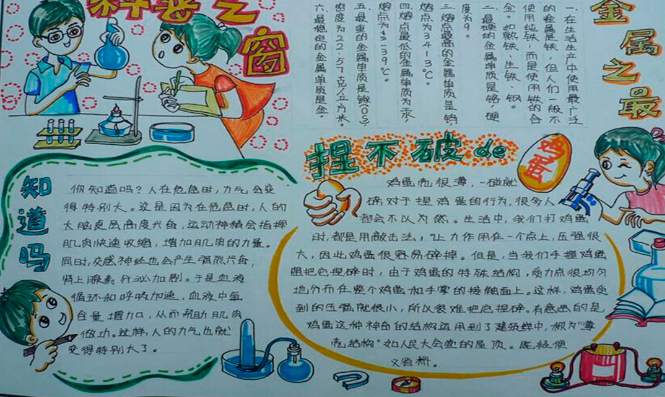 科技之窗
金属之最
一.在生活生产中使用最广泛
的金属是铁，但人们一般不
使用纯铁，而是使用铁的合
金。如熟铁、生铁、钢。
二.最硬的金属单质是铬，硬
度为9。
三.熔点最高的金属单质是钨，
熔点为3413℃。
四.熔点最低的金属单质为汞，
熔点为-39℃。
五.最重的金属单质是锇(Os)
密度为22.57克/立方米。
六.最稳定的金属单质是金
知道吗
你知道吗？人在危急时，力气会变
得特别大。这是因为在危急时，人的
大脑皮层高度兴奋，运动神经会指挥
肌肉快速收缩，增加肌肉的力量。
同时，交感神经也会产生强烈兴奋，
肾上腺素分泌加剧。于是血液
循环和呼吸加速，血液中氧
含量增加，从而帮助肌肉
做功。这样，人的力气也就
变得特别大了。
捏不破de鸡蛋
鸡蛋壳很薄，一碰就
碎，对于捏鸡蛋的行为，很多人
都会不以为然。生活中，我们打鸡蛋
时，都是用敲击法，让力作用在一个点上，压强很
大，因此鸡蛋很容易碎掉。但是，当我们手握鸡蛋
想把它捏碎时，由于鸡蛋的特殊结构，受力点很均匀
地分布在整个鸡蛋和手掌的接触面上。这样，鸡蛋受
到的压强就很小，所以很难把它捏碎。有意思的是，
鸡蛋这种神奇的结构运用到了建筑学中，称为"薄
壳结构"。如人民大会堂的屋顶。既轻便
又省料。